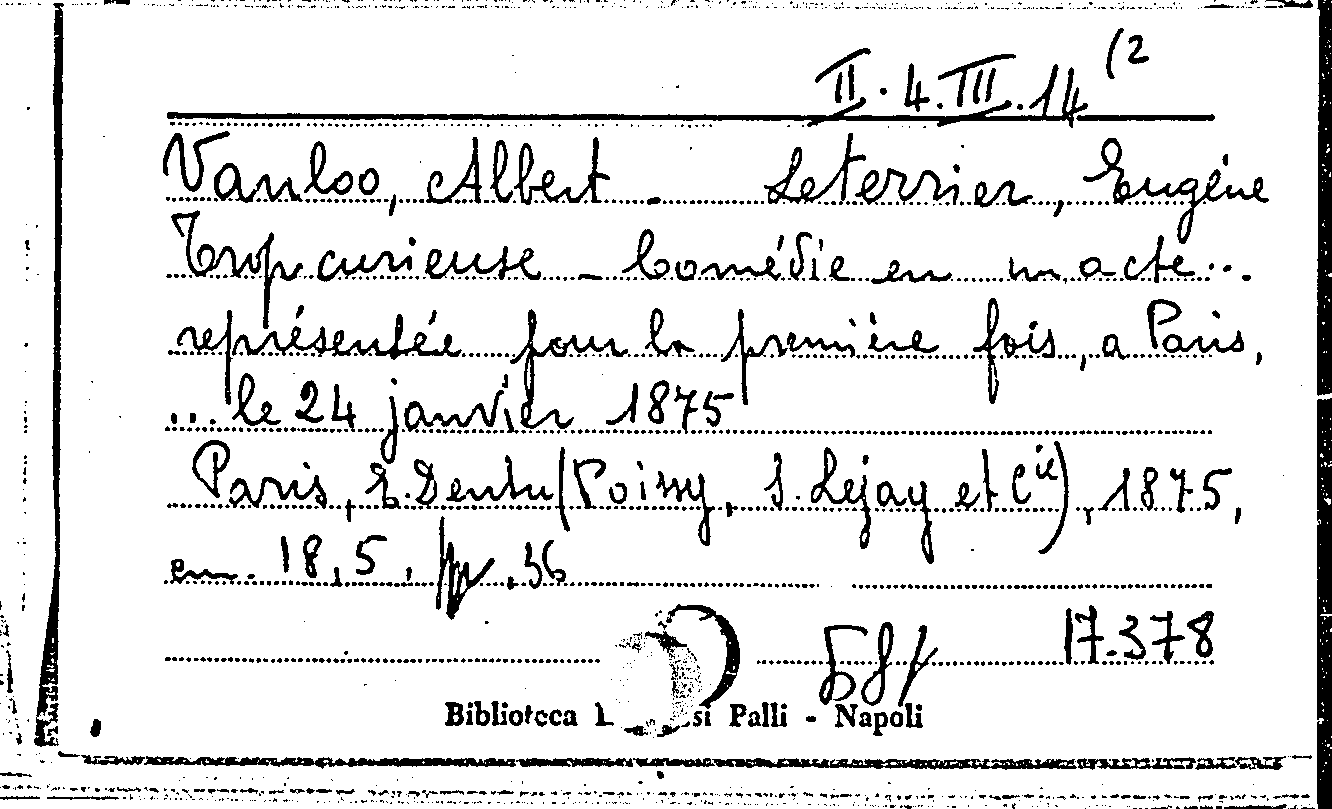 II.4.III.14 (2
Vanloo, Albert - Leterrier, Eugène
Trop curieuse - Comédie en un acte...
représentée pour la première fois, a Paris,
... le 24 janvier 1875
Paris, E. Dentu (Poissy, S. Lejay et Cie), 1875,
cm. 18,5, pp. 36
17.378
Biblioteca Palli - Napoli